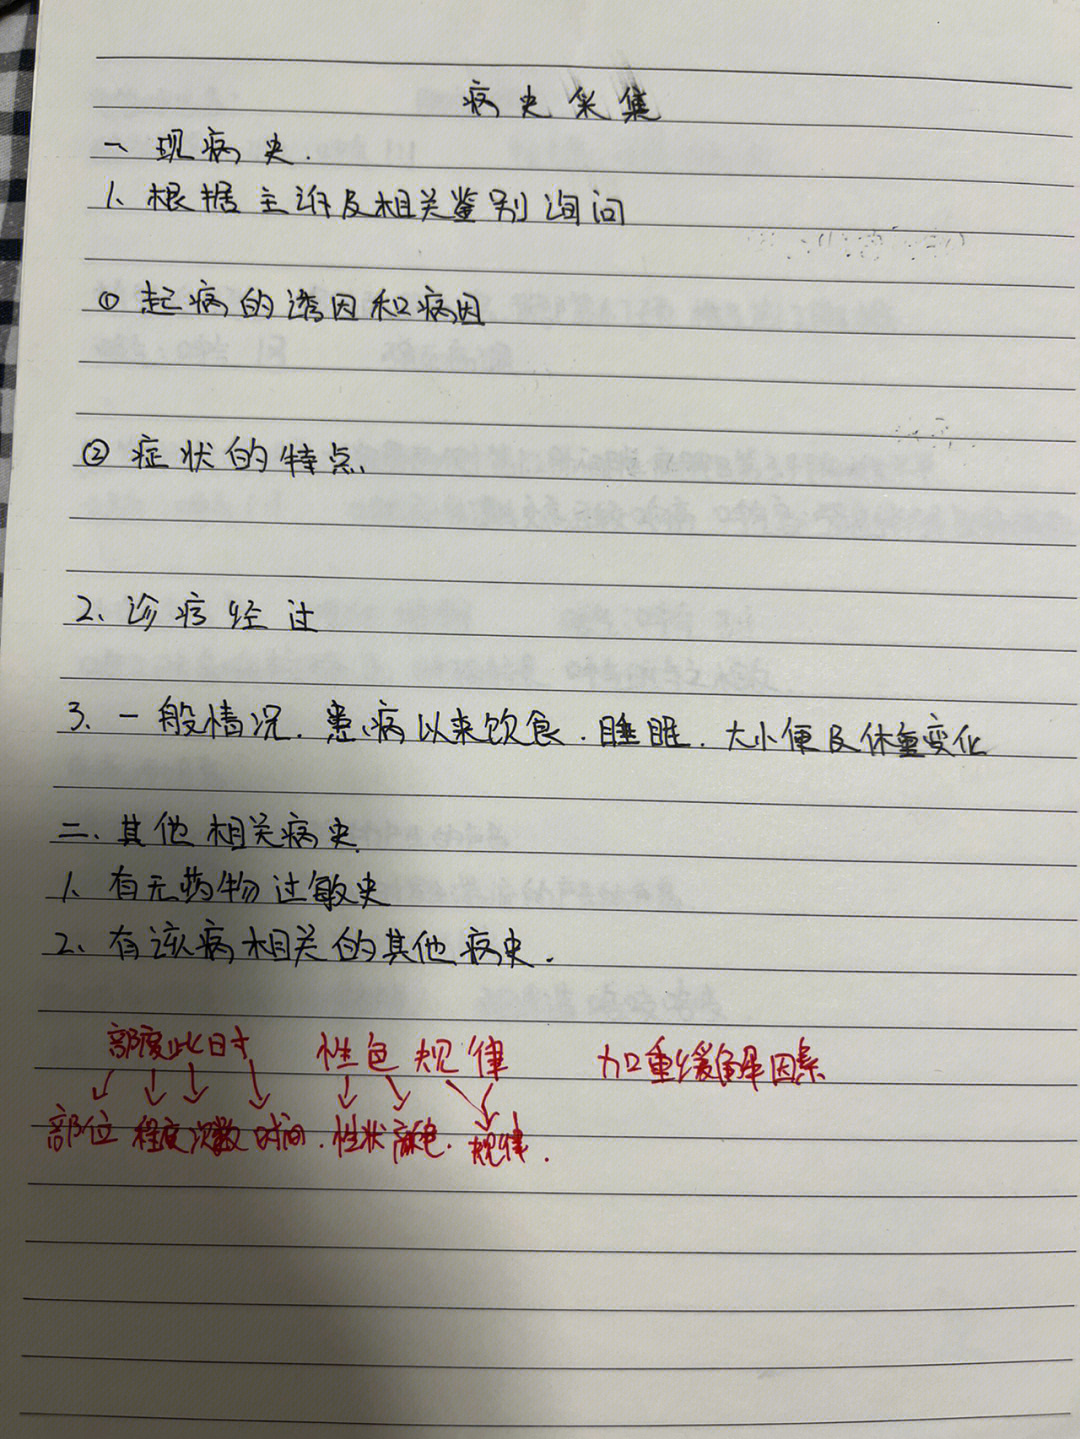 病史采集
一 现病史.
1. 根据主诉及相关鉴别询问
① 起病的诱因和病因
② 症状的特点.
2. 诊疗经过
3. 一般情况. 患病以来饮食. 睡眠. 大小便及体重变化
二. 其他相关病史.
1. 有无药物过敏史
2. 有该病相关的其他病史.
部度此日寸 性色规律 加重缓解因素
部位 程度 次数 时间. 性状 颜色. 规律.